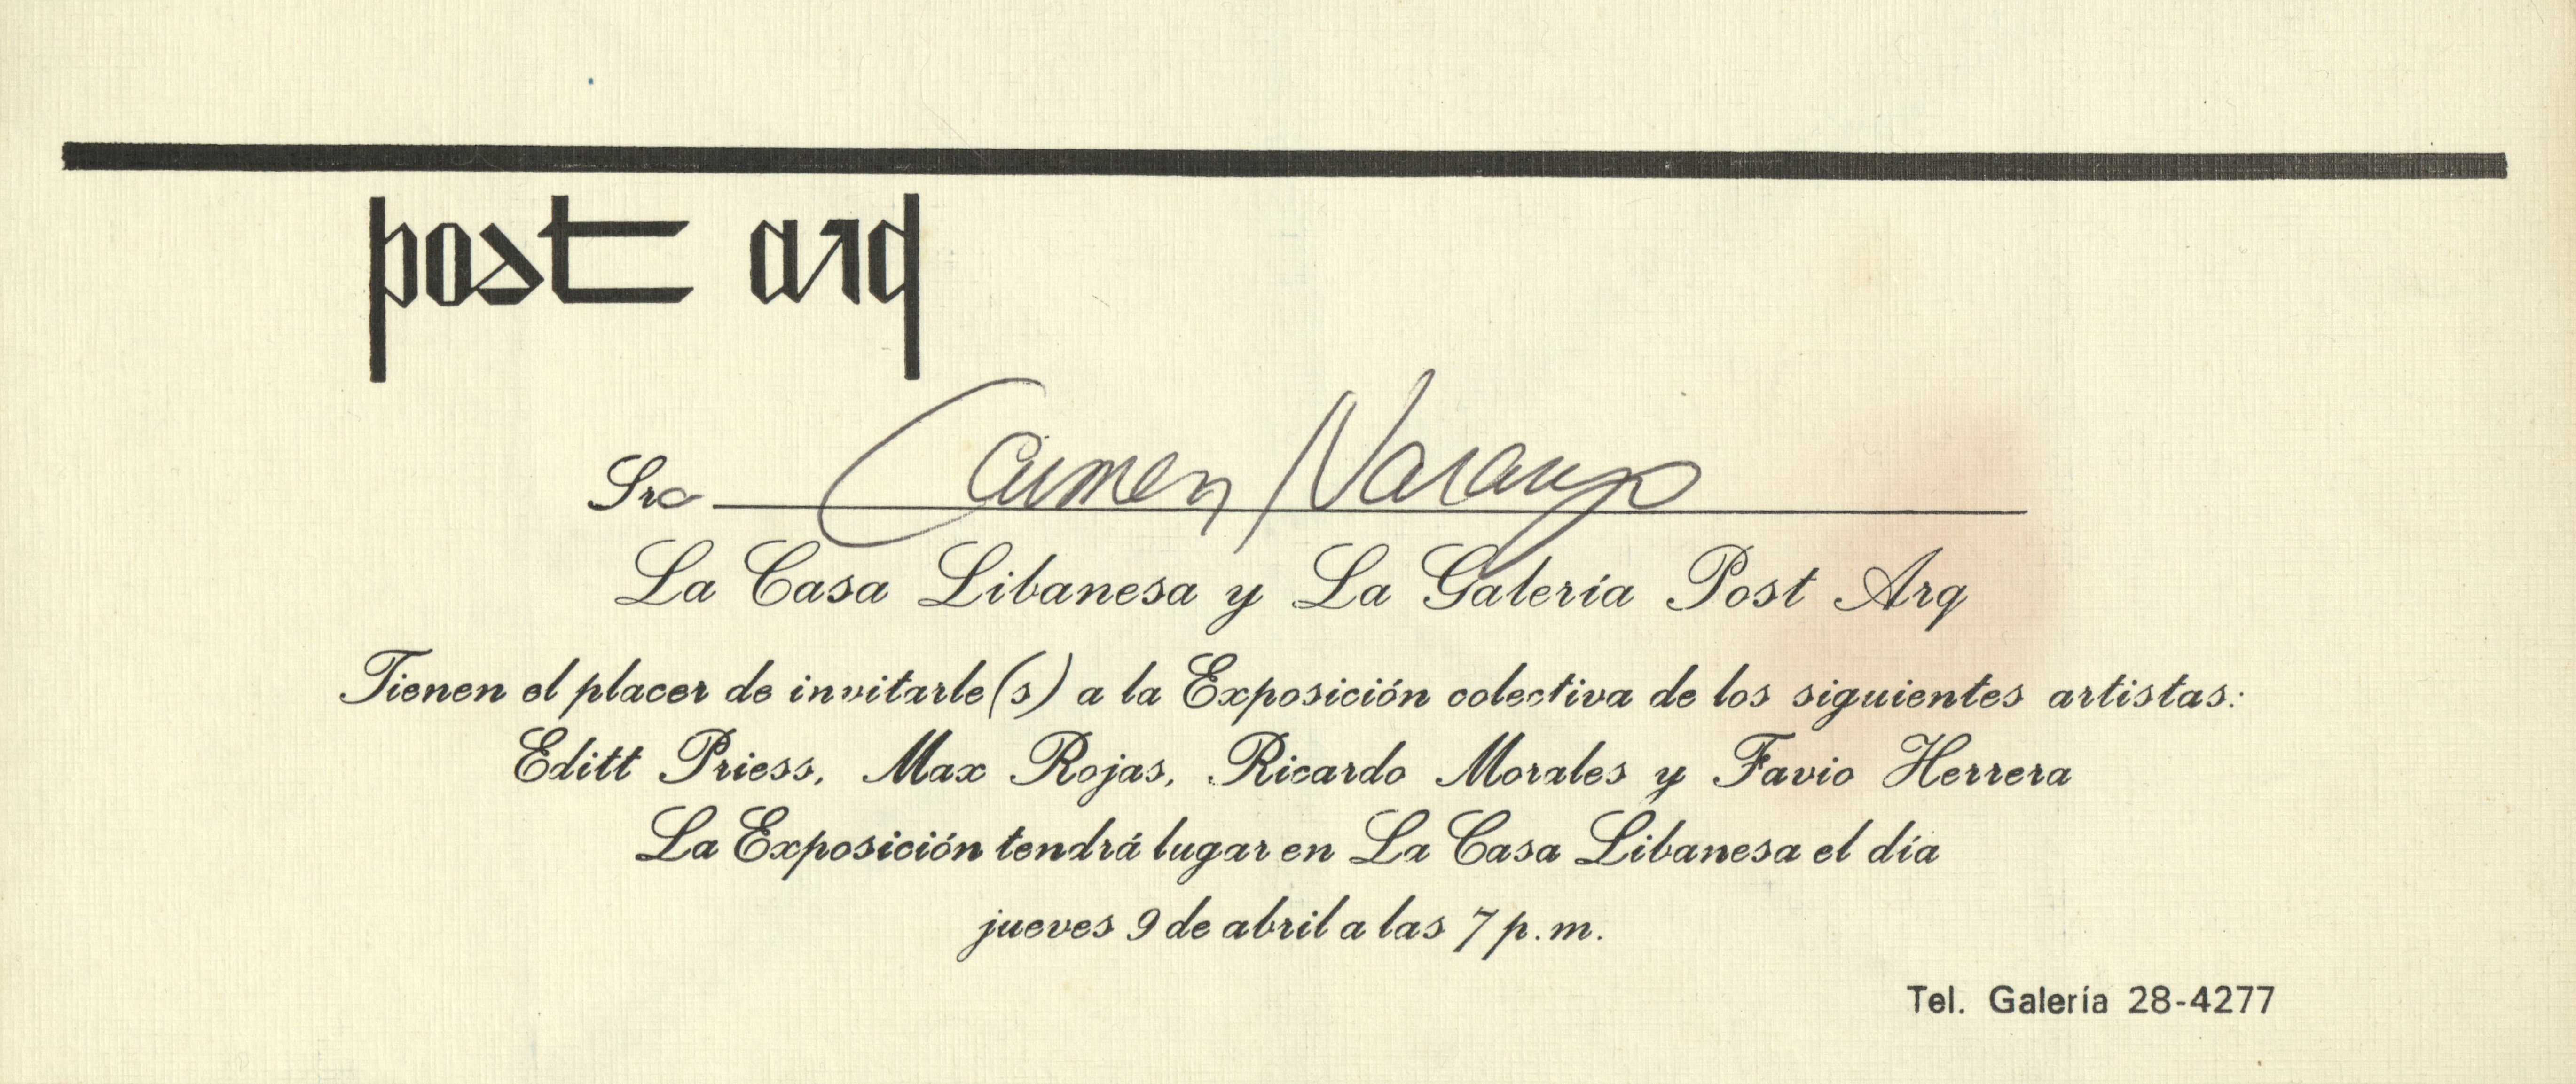 post arq
Sra Carmen Naranjo
La Casa Libanesa y La Galería Post Arq
Tienen el placer de invitarle(s) a la Exposición colectiva de los siguientes artistas:
Editt Priess, Max Rojas, Ricardo Morales y Favio Herrera
La Exposición tendrá lugar en La Casa Libanesa el día
jueves 9 de abril a las 7 p.m.
Tel. Galería 28-4277